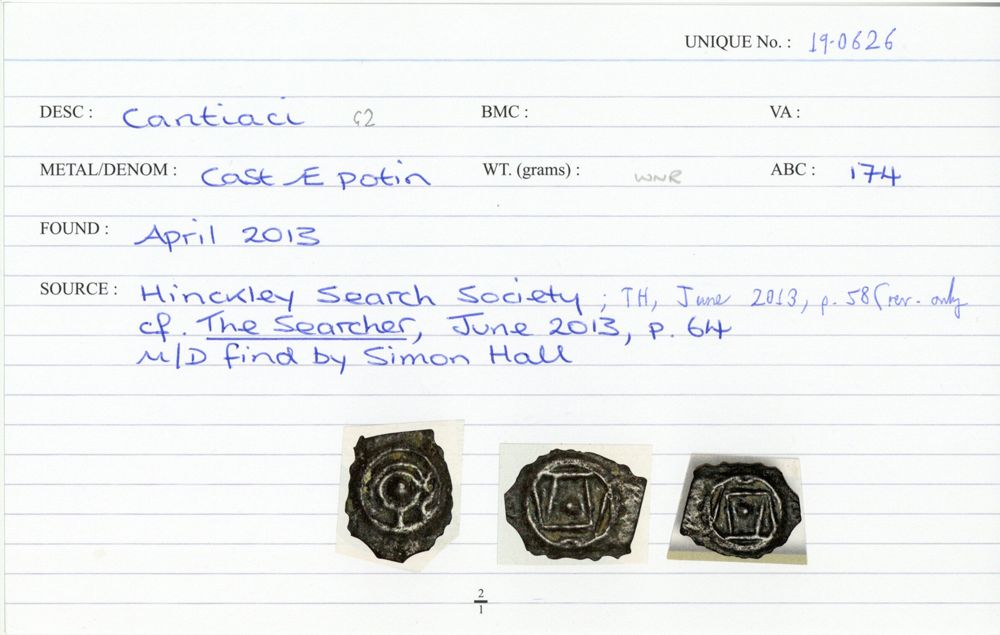 UNIQUE No. : 19-0626
DESC : Cantiaci G2 BMC : VA :
METAL/DENOM : Cast Æ potin WT. (grams) : WNR ABC : 174
FOUND : April 2013
SOURCE : Hinckley Search Society ; TH, June 2013, p. 58 (rev. only
cf. The Searcher, June 2013, p. 64
M/D find by Simon Hall
2
1